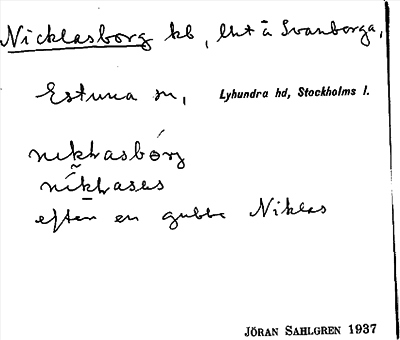 Nicklasborg kb, lht å Svanberga,
Estuna sn, Lyhundra hd, Stockholms l.
nikḷasbórg
nĩkḷases
efter en gubbe Niklas
JÖRAN SAHLGREN 1937